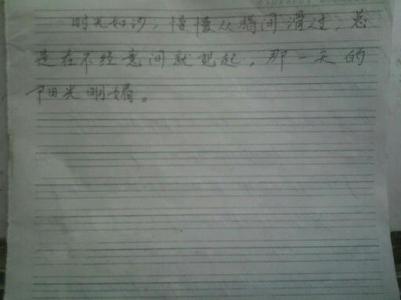 时光如沙，慢慢从指间滑过，总
是在不经意间就想起，那一天的
阳光明媚。